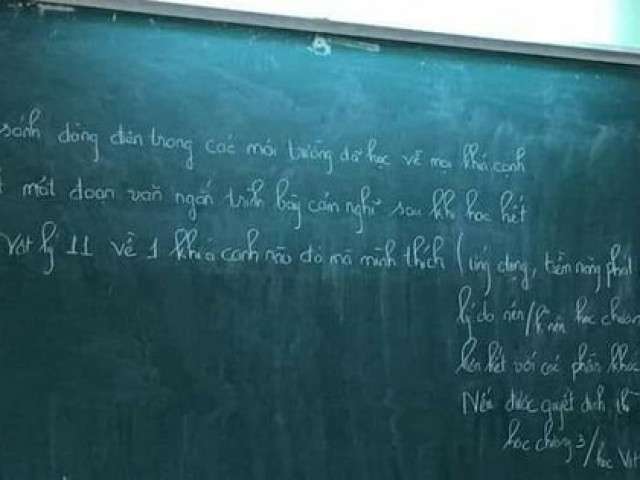 sánh dòng điện trong các môi trường đã học về mọi khía cạnh
một đoạn văn ngắn trình bày cảm nghĩ sau khi học hết
Vật lý 11 về 1 khía cạnh nào đó mà mình thích (ứng dụng, tiềm năng phát
lý do nên/k nên học chương
liên kết với các phần khác
Nếu được quyết định th
học chương 3/học Vật